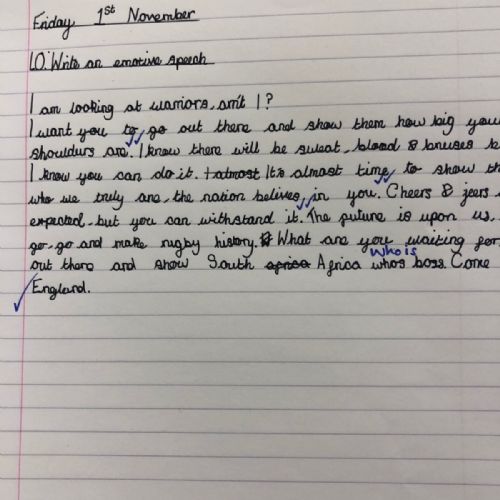 Friday 1st November
LO: Write an emotive speech
I am looking at warriors, arn't I?
I want you to go out there and show them how big your
shouldurs are. I know there will be sweat, blood & bruises
I know you can do it. +atmost It's almost time, to show
who we truly are, the nation belives in you. Cheers & jeers
expected, but you can withstand it. The future is upon us.
go and make rugby history. What are you waiting for
out there and show South africa Africa whos boss. Come
who is
England.